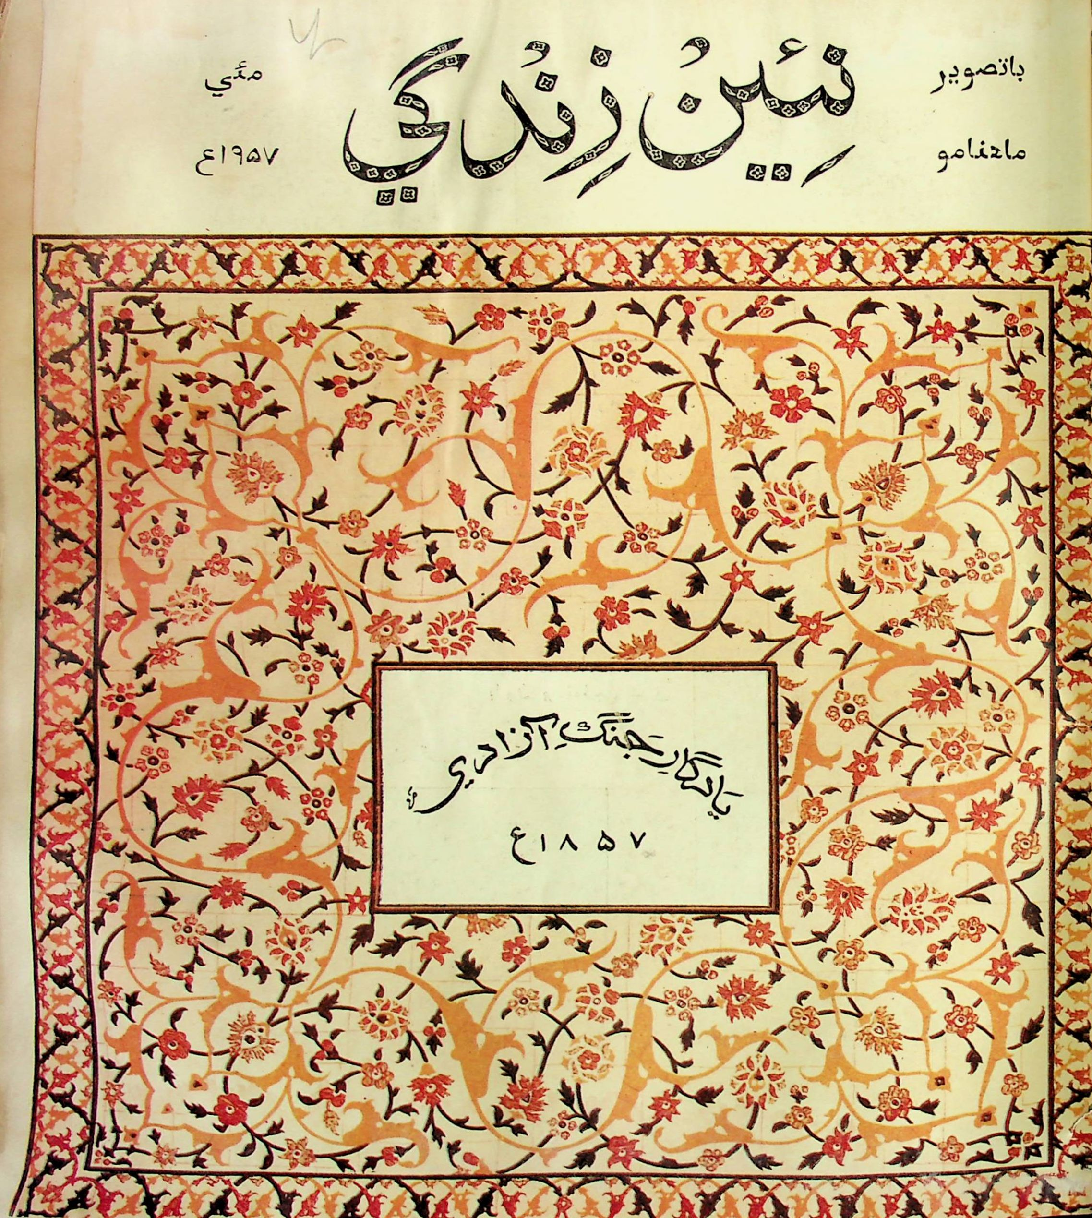 باتصوير
ماهنامو
نِئين زِندگي
مئي
١٩٥٧ع
يادگارِ جَنگِ آزادي
١٨٥٧ع